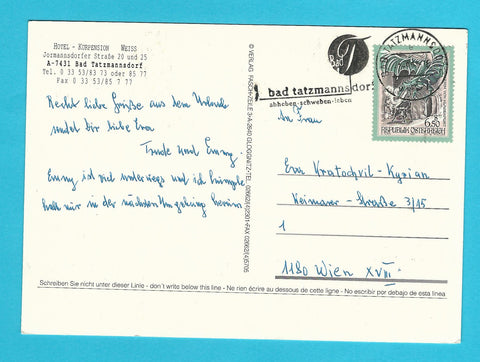 HOTEL - KURPENSION WEISS
Jormannsdorfer Straße 20 und 25
A-7431 Bad Tatzmannsdorf
Tel. 0 33 53/83 73 oder 85 77
Fax 0 33 53/85 77
Recht liebe Grüße aus dem Urlaub
sendet Dir liebe Eva
Trude und Emmy
Emmy ist viel unterwegs und ich
halt nur in der nächsten Umgebung herum
© VERLAG
Bad T
bad tatzmannsdorf
abheben-schweben-leben
TATZMANNSDORF
6,50
REPUBLIK ÖSTERREICH
An Frau
Eva Kratochvil-Kyrian
Weimarer-Straße 3/15
1
1180 Wien XVIII
Schreiben Sie nicht unter dieser Linie - don't write below this line - Ne rien écrire au dessous de cette ligne - No escribir por debajo de esta linea